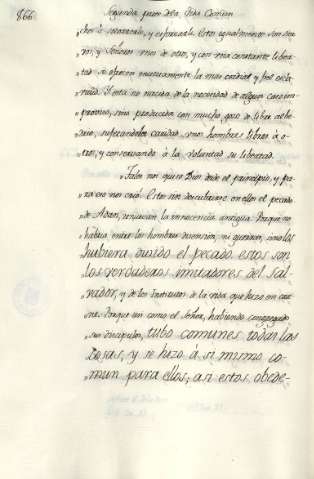 866. Segunda parte de la Vida Comun
"dos á sacarselo, y experarle. Estos igualmente son sier-
"vos, y Señores unos de otros, y con una constante liber-
"tad se ofrecen mutuamente la mas cordial, y fiel escla-
"vitud. Y esta no nacida de la necesidad de algun caso im-
"provisto, sino producida con mucho gozo de libre albe-
"drio, sujetandolos la caridad, unos hombres libres á o-
"tros, y conservando á la voluntad su libertad.
"Tales nos quiso Dios desde el principio, y pa-
"ra eso nos crió. Estos nos descubrieron en ellos el pecado
"de Adan, renuevan la innocencia antigua. Porque no
"habria entre los hombres division, ni querellas, sino los
"hubiera dividido el pecado. Estos son
"los verdaderos imitadores del Sal-
"vador, y de los Institutos de la vida que hizo en car-
"ne. Porque asi como el Señor, habiendo congregado
"sus Discipulos, tubo comunes todas las
"cosas, y se hizo á si mismo co-
"mun para ellos, asi estos, obede-